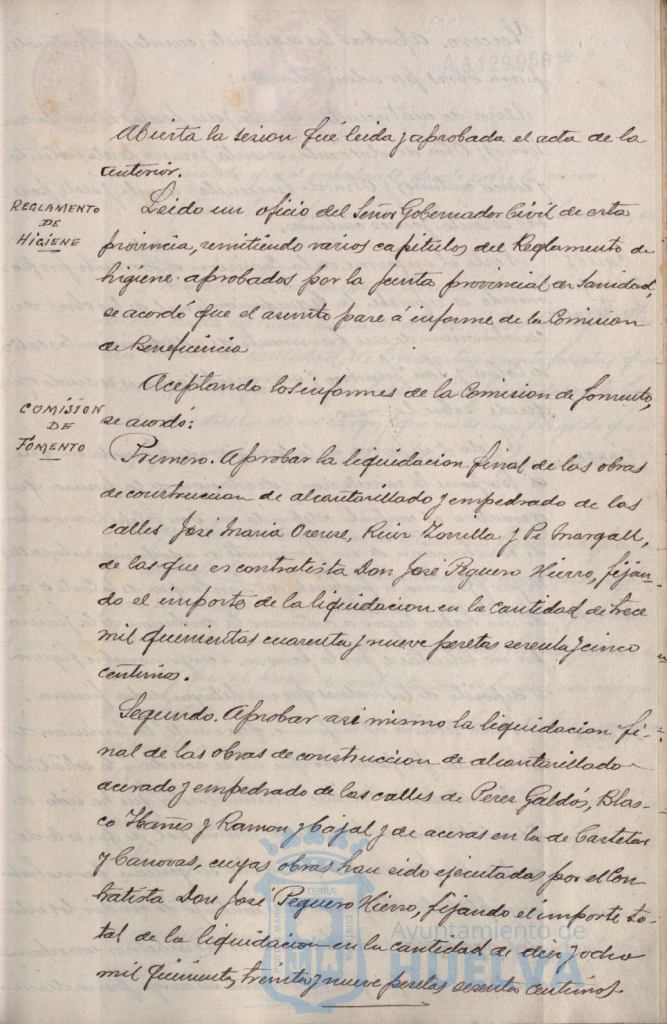 Abierta la sesion fué leida y aprobada el acta de la
anterior.
REGLAMENTO
DE
HIGIENE
Leido un oficio del Señor Gobernador Civil de esta
provincia, remitiendo varios capitulos del Reglamento de
higiene aprobados por la Junta provincial de Sanidad,
se acordó que el asunto pase á informe de la Comision
de Beneficencia
COMISSON
DE
FOMENTO
Aceptando los informes de la Comision de Fomento,
se acordó:
Primero. Aprobar la liquidacion final de las obras
de construccion de alcantarillado y empedrado de las
calles José Maria Orense, Ruiz Zorrilla y Pi Margall,
de las que es contratista Don José Peguero Hierro, fijan-
do el importe de la liquidacion en la cantidad de trece
mil quinientas cuarenta y nueve pesetas setenta y cinco
centimos.
Segundo. Aprobar asi mismo la liquidacion fi-
nal de las obras de construccion de alcantarillado
acerado y empedrado de las calles de Perez Galdós, Blas-
co Ibañes y Ramon y Cajal y de aceras en la de Castelar
y Canovas, cuyas obras han sido ejecutadas por el Con
tratista Don José Peguero Hierro, fijando el importe to-
tal de la liquidacion en la cantidad de diez y ocho
mil quinientas treinta y nueve pesetas sesenta centimos.
Ayuntamiento de
HUELVA